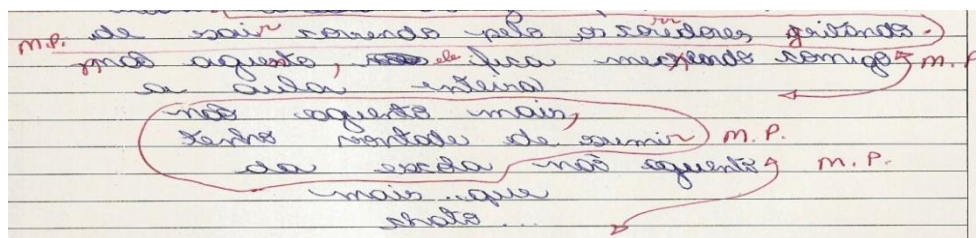 m.p. de sair correndo pelo corredores, gritando.
não aguento, ele fica mexendo comigo m.p
a aula inteira
não aguento mais,
tenho vontade de sumir m.p.
da escola não aguento m.p.
mais.. que
chato...